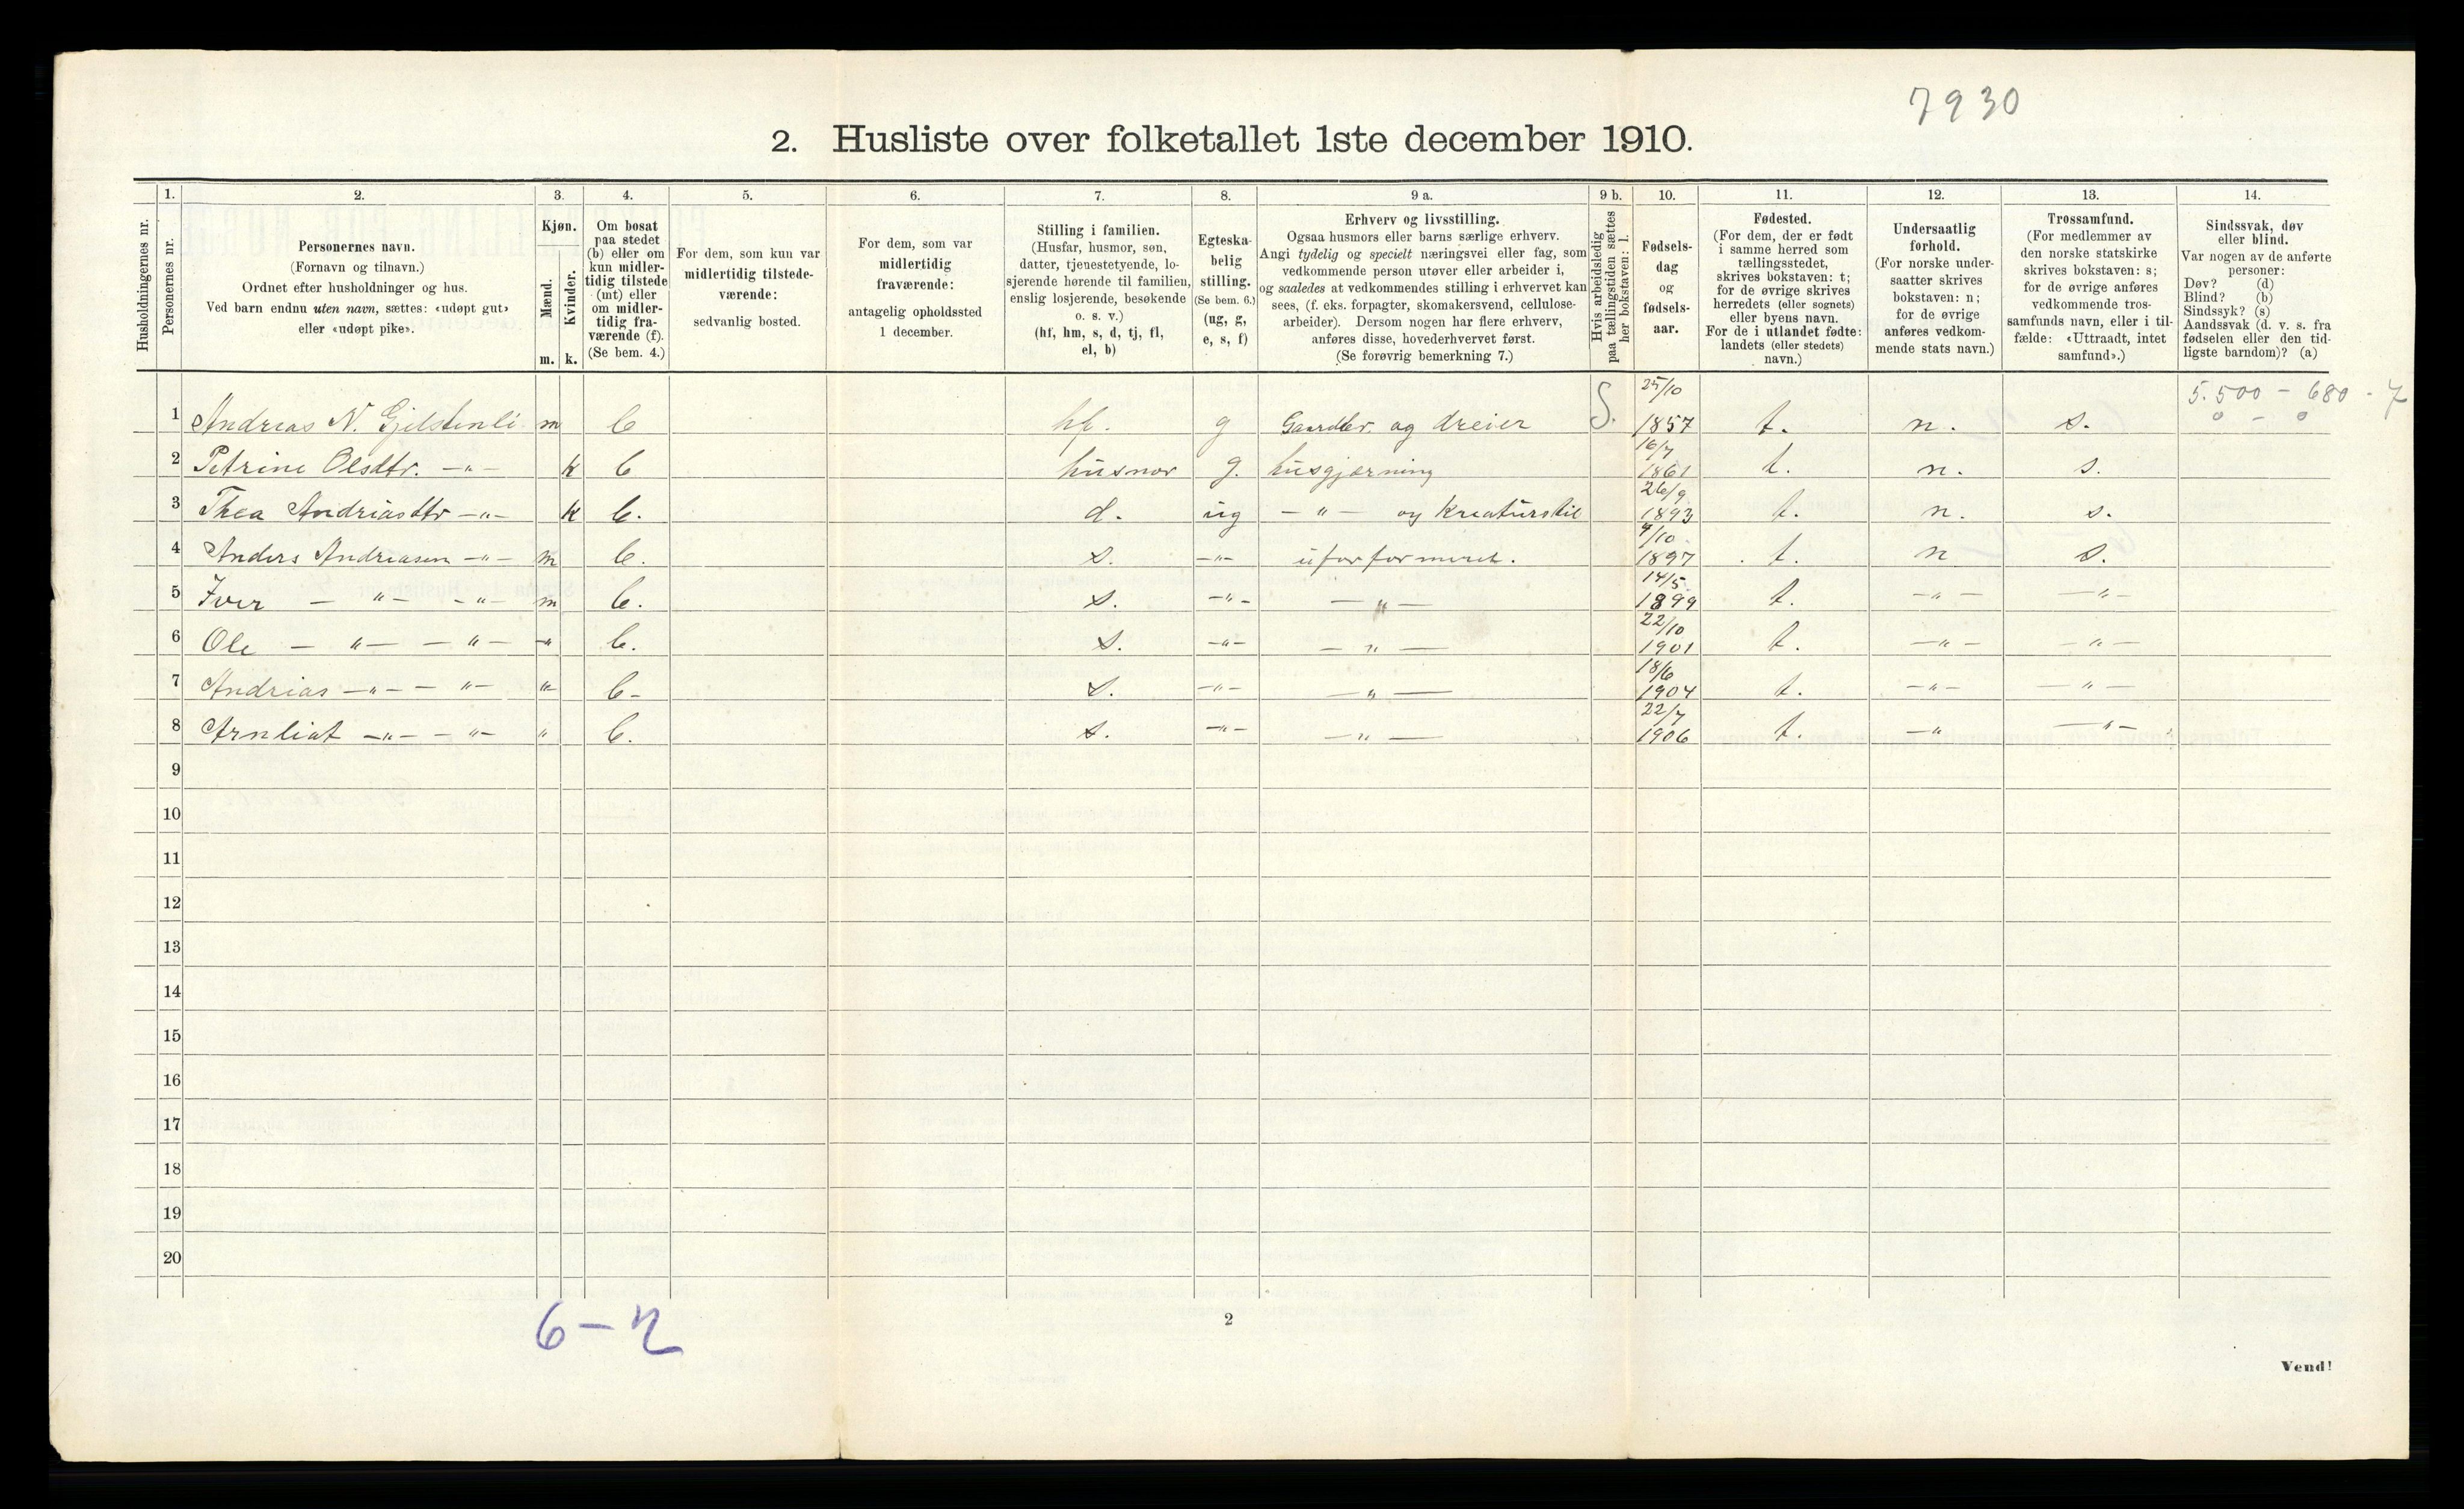 7930
2. Husliste over folketallet 1ste december 1910.
Husholdningernes nr.
1.
Personernes nr.
2.
Personernes navn.
(Fornavn og tilnavn.)
Ordnet efter husholdninger og hus.
Ved barn endnu uten navn, sættes: «udøpt gut»
eller «udøpt pike».
3.
Kjøn.
Mænd.
Kvinder.
m. k.
4.
Om bosat
paa stedet
(b) eller om
kun midler-
tidig tilstede
(mt) eller
om midler-
tidig fra-
værende (f).
(Se bem. 4.)
5.
For dem, som kun var
midlertidig tilstede-
værende:
sedvanlig bosted.
6.
For dem, som var
midlertidig
fraværende:
antagelig opholdssted
1 december.
7.
Stilling i familien.
(Husfar, husmor, søn,
datter, tjenestetyende, lo-
sjerende hørende til familien,
enslig losjerende, besøkende
o. s. v.)
(hf, hm, s, d, tj, fl,
el, b)
8.
Egteska-
belig
stilling.
(Se bem. 6.)
(ug, g,
e, s, f)
9 a.
Erhverv og livsstilling.
Ogsaa husmors eller barns særlige erhverv.
Angi tydelig og specielt næringsvei eller fag, som
vedkommende person utøver eller arbeider i,
og saaledes at vedkommendes stilling i erhvervet kan
sees, (f. eks. forpagter, skomakersvend, cellulose-
arbeider). Dersom nogen har flere erhverv,
anføres disse, hovederhvervet først.
(Se forøvrig bemerkning 7.)
9 b.
Hvis arbeidsledig
paa tællingstiden sættes
her bokstaven: l.
10.
Fødsels-
dag
og
fødsels-
aar.
11.
Fødested.
(For dem, der er født
i samme herred som
tællingsstedet,
skrives bokstaven: t;
for de øvrige skrives
herredets (eller sognets)
eller byens navn.
For de i utlandet fødte:
landets (eller stedets)
navn.)
12.
Undersaatlig
forhold.
(For norske under-
saatter skrives
bokstaven: n;
for de øvrige
anføres vedkom-
mende stats navn.)
13.
Trossamfund.
(For medlemmer av
den norske statskirke
skrives bokstaven: s;
for de øvrige anføres
vedkommende tros-
samfunds navn, eller i til-
fælde: «Uttraadt, intet
samfund».)
14.
Sindssvak, døv
eller blind.
Var nogen av de anførte
personer:
Døv? (d)
Blind? (b)
Sindssyk? (s)
Aandssvak (d. v. s. fra
fødselen eller den tid-
ligste barndom)? (a)
5.500 - 680 - 7
0 - 0
1 Andreas N. Gjelstenli m b hf. g Gaardbr. og dreier S. 25/10 1857 t. n. s.
2 Petrine Olsdtr. -"- k b husmor g. husgjærning 16/7 1861 t. n. s.
3 Thea Andriasdtr -"- k b. d. ug -"- og Kreaturstil 26/9 1893 t. n. s.
4 Anders Andreasen -"- m b. s. -"- uforformeret. 4/10 1897 t. n s.
5 Iver - "- -"- m b. s. -"- -"- 14/5 1899 t. -"- -"-
6 Ole - "- - "- -" b. s. -"- -"- 22/10 1901 t. -"- -"-
7 Andrias -"- - "- "- b- s. -"- -"- 18/6 1904 t. -"- -"-
8 Arnliot -"- - "- " b. s. -"- -"- 22/7 1906 t. -" -"-
9
10
11
12
13
14
15
16
17
18
19
20
6-2
2
Vend!